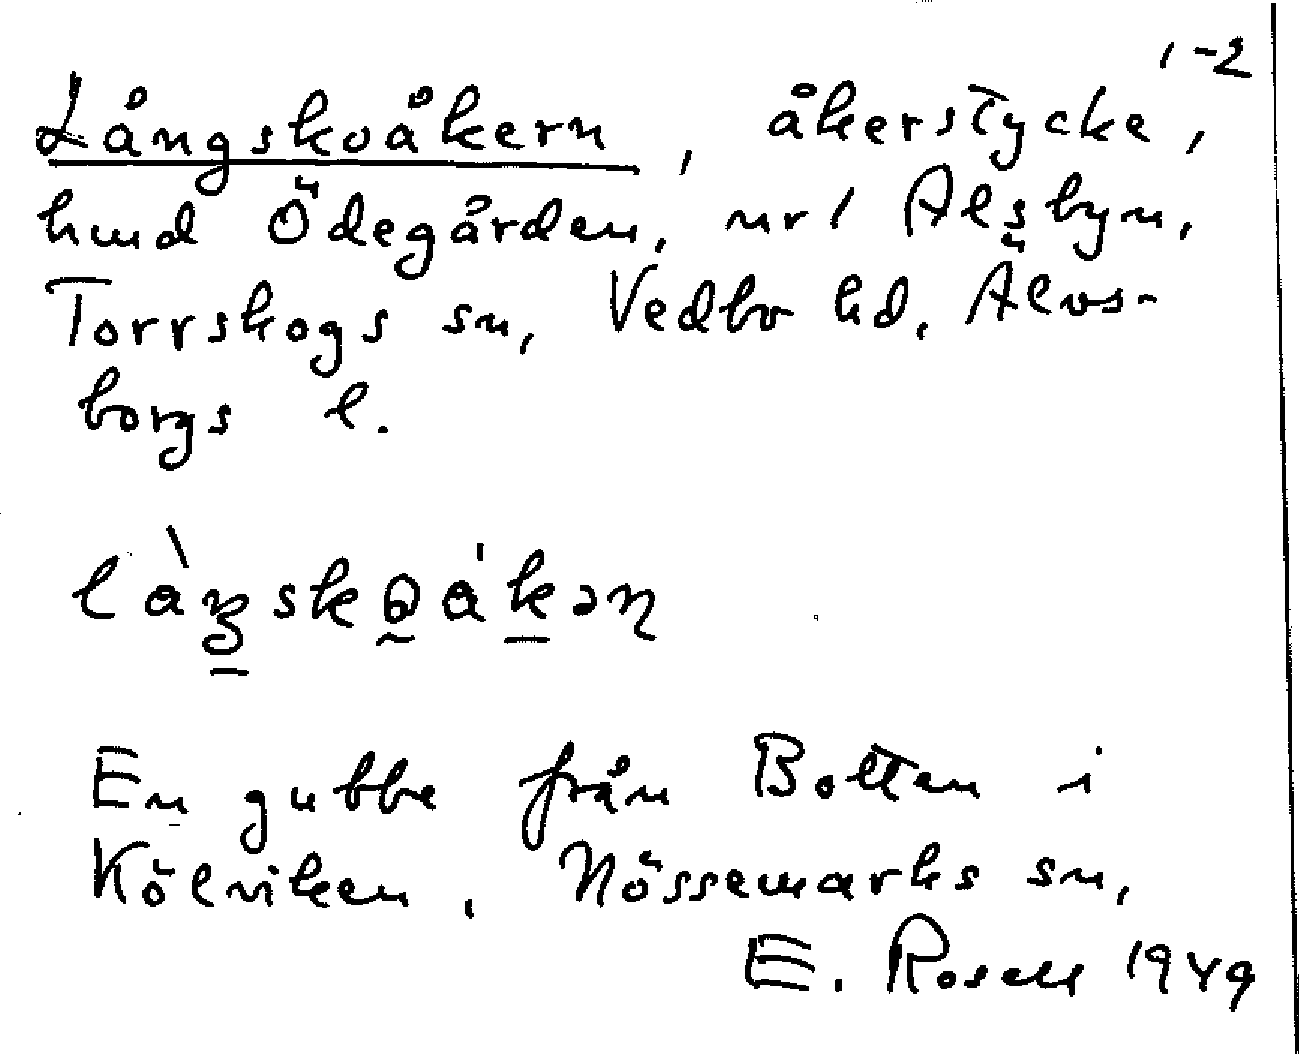 1-2
Långskoåkern, åkerstycke,
hmd Ödegården, nr 1 Älsbyn,
Torrskogs sn, Vedbo hd, Älvs-
borgs l.
En gubbe från Botten i
Kölviken, Nössemarks sn,
E. Rosell 1949